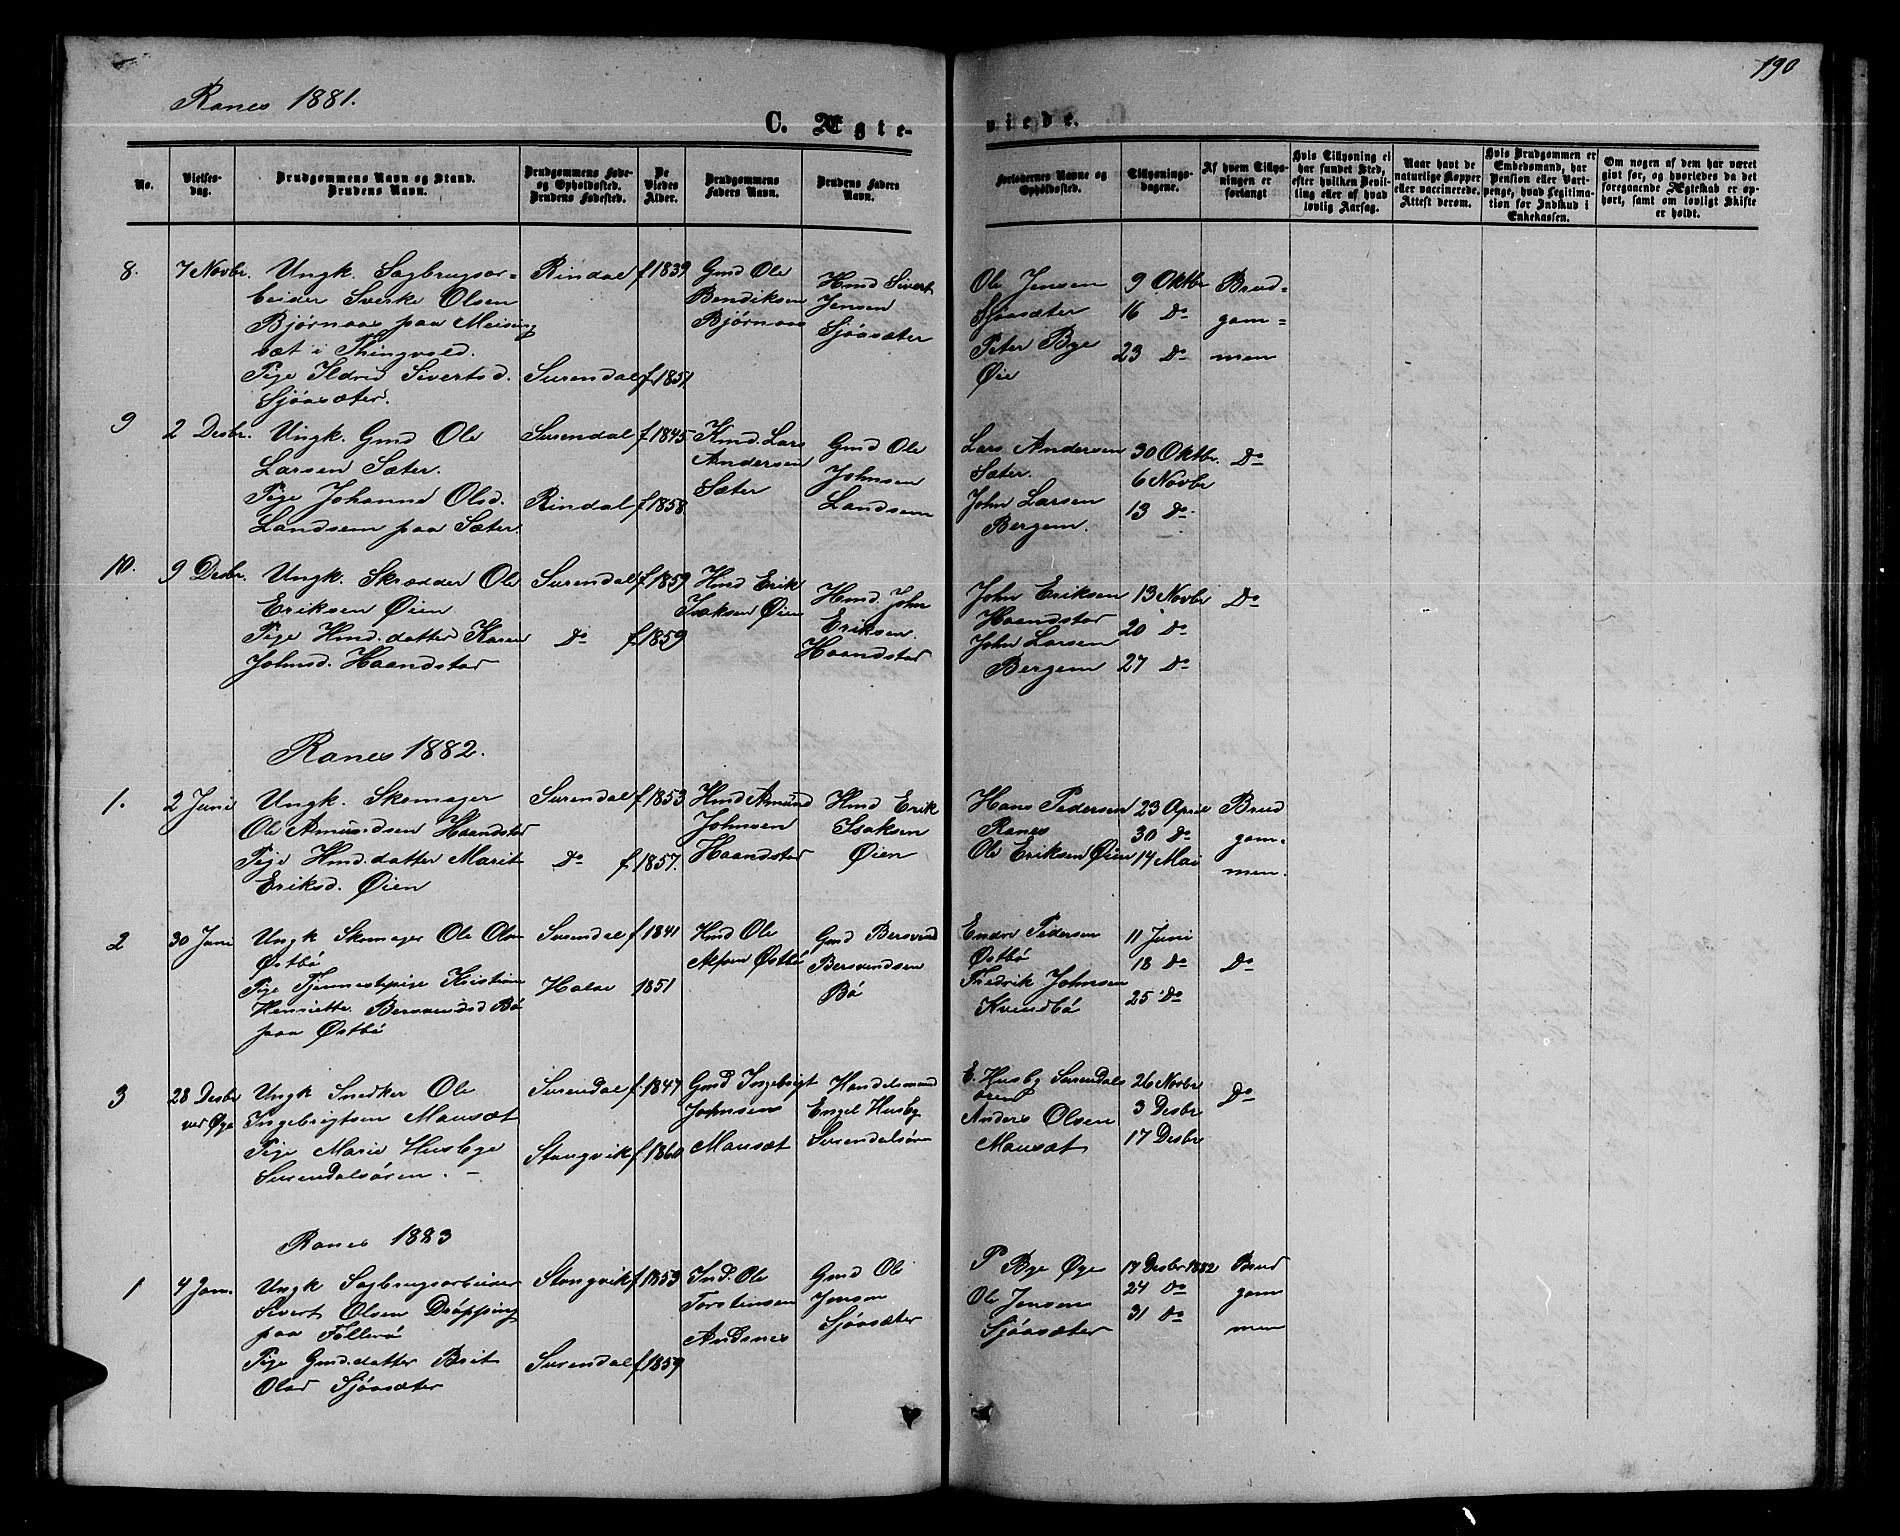 190
Ranes 1881.
C. Ægte-
viede.
No.
Vielses-
dag.
Brudgommens Navn og Stand.
Brudens Navn.
Brudgommens Føde-
og Opholdssted.
Brudens Fødested.
De
Viedes
Alder.
Brudgommens
Faders Navn.
Brudens Faders
Navn.
Forlovernes Navne og
Opholdssted.
Tillysnings-
dagene.
Af hvem Tillys-
ningen er
forlangt
Hvis Tillysning ei
har fundet Sted,
efter hvilken Bevil-
ling eller af hvad
lovlig Aarsag.
Naar havt de
naturlige Kopper
eller vaccinerede.
Attest derom.
Hvis Brudgommen er
Embedsmand, har
Pension eller Vart-
penge, hvad Legitima-
tion for Indskud i
Enkekassen.
Om nogen af dem har været
givt før, og hvorledes da det
foregaaende Ægteskab er op-
hørt, samt om lovligt Skifte
er holdt.
8.
7 Novbr.
Ungk. Sagbrugsar-
beider Sverke Olsen
Bjørnaas paa Meising
sæt i Thingvold.
Pige Ildrid Sivertsd.
Sjøasæter.
Rindal
Surendal
f 1839
f. 1851
Gmd Ole
Bendiksen
Bjørnaas
Hmd Sivert
Jensen
Sjøasæter
Ole Jensen
Sjøasæter
Peter Bye
Øie
9 Oktbr
16 Do
23 Do
Brud-
gom-
men
9
2 Desbr.
Ungk. Gmd Ole
Larsen Sæter.
Pige Johanne Olsd.
Landsem paa Sæter.
Surendal
Rindal
f 1845
f 1858
Kmd. Lars
Andersen
Sæter
Gmd Ole
Johnsen
Landsem
Lars Andersen
Sæter.
John Larsen
Bergem.
30 Oktbr.
6 Novbr
13 Do
Do
10.
9 Desbr.
Ungk. Skrædder Ole
Eriksen Øien
Pige Hmd. datter Karen
Johnsd. Haandstad
Surendal
Do
f. 1859
f. 1859
Hmd Erik
Isaksen Øien
Hmd. John
Eriksen.
Haandstad
John Eriksen
Haandstad
John Larsen
Bergem
13 Novbr
20 Do
27 Do
Do
Ranes 1882.
1.
2 Juni
Ungk. Skomager
Ole Amundsen Haandstad
Pige Hmd. datter Marit
Eriksd. Øien
Surendal
Do
f. 1853
f. 1857.
Hmd Amund
Johnsen
Haandstad
Hmd Erik
Isaksen
Øien
Hans Pedersen
Ranes
Ole Eriksen Øien
23 April
30 Do
14 Mai
Brud
gom-
men.
2
30 Juni
Ungk Skomager Ole Olsen
Østbø
Pige Tjenestepige Kristine
Henriette Bersvendsd Bø
paa Østbø
Surendal
Halse
f. 1841
1851
Hmd Ole
Østbø
Gmd Bersvend
Bersvendsen
Bø
Endre Pedersen
Østbø
Fredrik Johnsen
Kvendbø
11 Juni
18 Do
25 Do
Do
3
28 Desbr
ved Øye
Ungk Snedker Ole
Ingebrigtsen Mausæt
Pige Marie Husbye
Surendalsøren.
Surendal
Stangvik
f. 1847
f 1860
Gmd Ingebrigt
Johnsens
Mausæt
Handelsmand
Engel Husby
Surendalsøren
E. Husby Surendals
øren
Anders Olsen
Mausæt
26 Novbr
3 Desbr
17 Desbr
Do
Ranes 1883
1
4 Jan.
Ungk Sagbrugsarbeider
Sivert Olsen Drøpping
paa Follerø
Pige Gmd. datter Brit
Olsd Sjøasæter
Stangvik
Surendal
f 1853
f. 1859
Ind. Ole
Torstensen
Andsnes
Gmd Ole
Jensen
Sjøasæter
P Bye Øye
Ole Jensen
Sjøasæter
17 Desbr 1882
24 Do
31 Do
Brud
gom
men